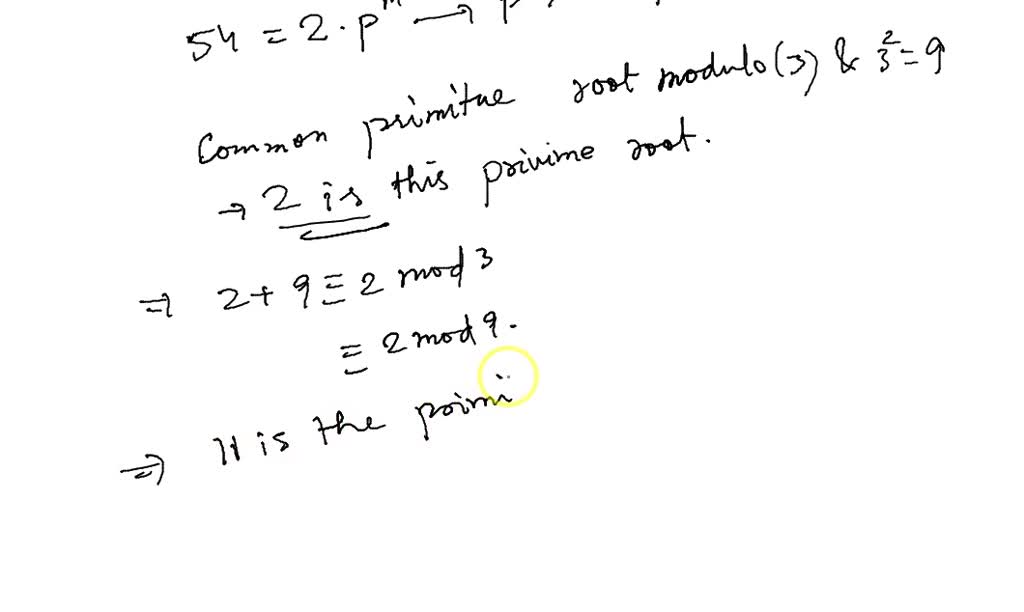 54 = 2 · p^m → p
Common primitue root modulo (3) & 3^2 = 9
→ 2 is this privime root.
⇒ 2 + 9 ≡ 2 mod 3
≡ 2 mod 9.
⇒ 11 is the poimi